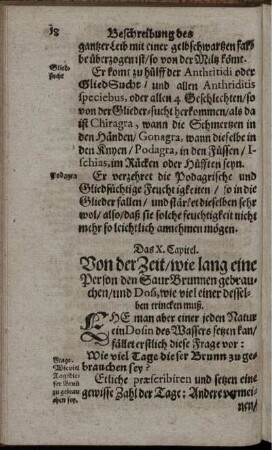 38 Beschreibung des
gantzer Leib mit einer gelbschwartzen far-
be überzogen ist / so von der Miltz kömt.
Glied-
sucht
Er komt zu hülff der Anthritidi oder
Glied Sucht / und allen Anthriditis
speciebus, oder allen 4. Geschlechten / so
von der Glieder-sucht herkommen / als da
ist Chiragra, wann die Schmertzen in
den Händen / Gonagra, wann dieselbe in
den Knyen / Podagra, in den Füssen / I-
schias, im Rücken oder Hüfften seyn.
Podagra
Er verzehret die Podagrische und
Gliedsüchtige Feuchtigkeiten / so in die
Glieder fallen / und stärcket dieselben sehr
wol / also / daß sie solche feuchtigkeit nicht
mehr so leichtlich annehmen mögen.
Das X. Capitel.
Von der Zeit / wie lang eine
Person den Saur Brunnen gebrau-
chen / und Dosin, wie viel einer dessel-
ben trincken muß.
EHE man aber einer jeden Natur
ein Dosin des Wassers setzen kan /
fället erstlich diese Frage vor:
Frage.
Wie viel
Tag die-
ser Brun
zu gebrau-
chen sey.
Wie viel Tage dieser Brunn zu ge-
brauchen sey?
Etliche præscribiren und setzen eine
gewisse Zahl der Tage: Andere vermei-
nen /